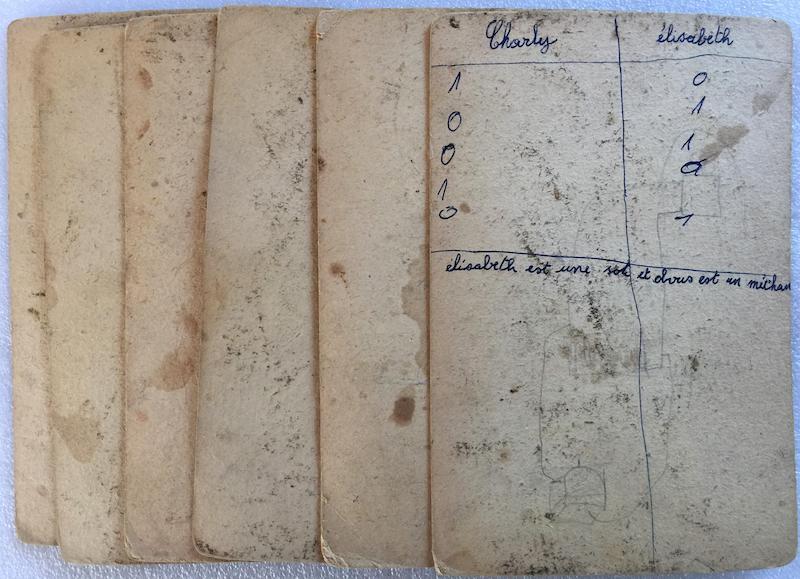 Charly élisabeth
1 0
0 1
0 1
1 0
0 1
élisabeth est une et est un méchan